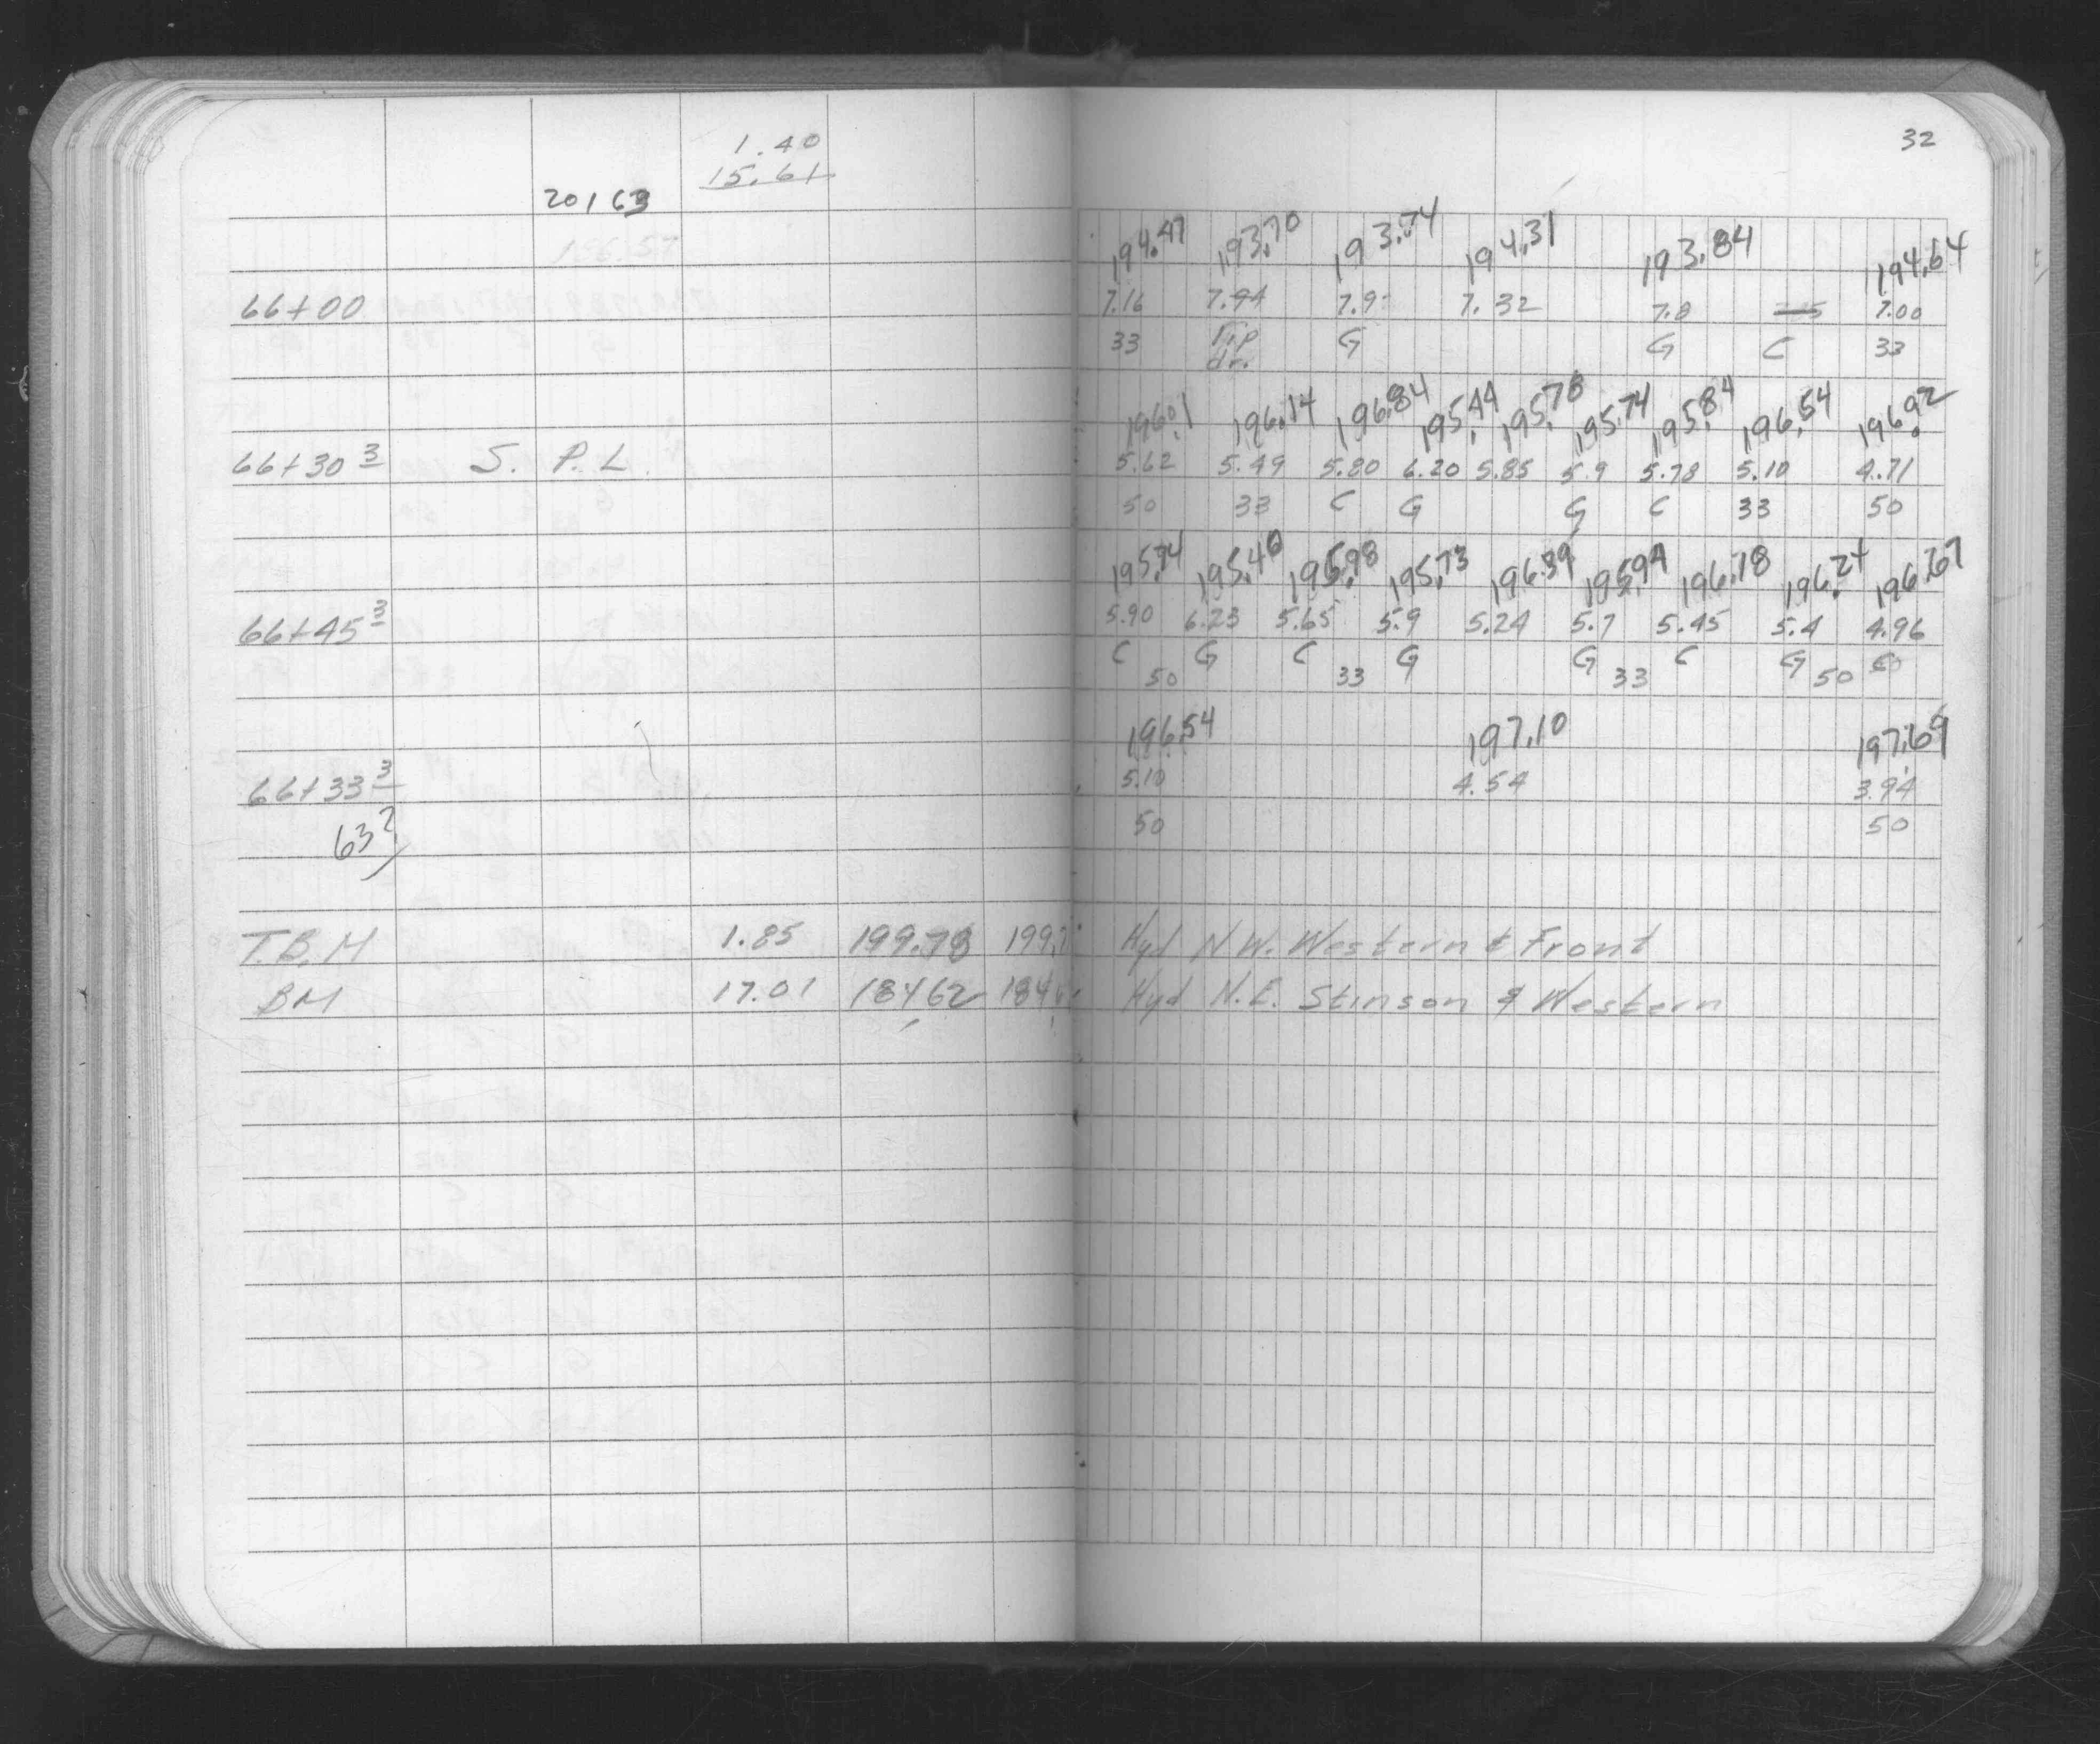 1.40
15.61
20163
186.57
66+00
66+30 3 S. P. L.
66+45 3
66+33 3
63?
T.B.M 1.85 199.78 199.7
BM 17.01 184.62 184
32
194.47 193.70 193.74 194.31 193.84 194.64
7.16 7.94 7.9 7.32 7.8 7.00
33 Tip dr. G G C 33
196.01 196.14 196.84 195.44 195.78 195.74 195.84 196.54 196.92
5.62 5.49 5.80 6.20 5.85 5.9 5.78 5.10 4.71
50 33 C G G C 33 50
195.74 195.40 195.98 195.73 196.39 195.94 196.18 196.24 196.67
5.90 6.23 5.65 5.9 5.24 5.7 5.45 5.4 4.96
C G C G G C G
50 33 33 50
196.54 197.10 197.69
5.10 4.54 3.94
50 50
Hyd N.W. Western & Front
Hyd N.E. Stinson & Western